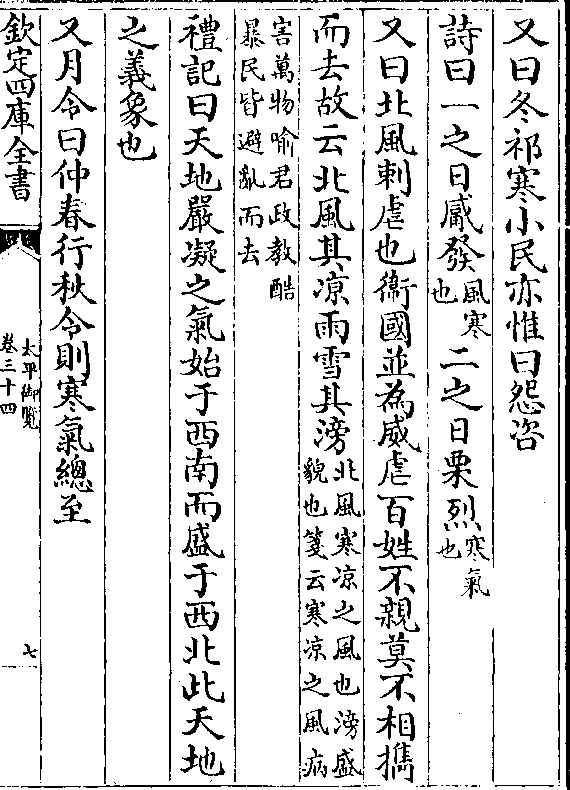 又曰冬祁寒小民亦惟曰怨咨
詩曰一之日觱發風寒也二之日栗烈寒氣也
又曰北風刺虐也衛國並為威虐百姓不親莫不相攜
而去故云北風其凉雨雪其滂北風寒凉之風也滂盛貌也箋云寒凉之風病
害萬物喻君政教酷暴民皆避亂而去
禮記曰天地嚴凝之氣始于西南而盛于西北此天地
之義象也
又月令曰仲春行秋令則寒氣總至
欽定四庫全書
太平御覽
卷三十四
七